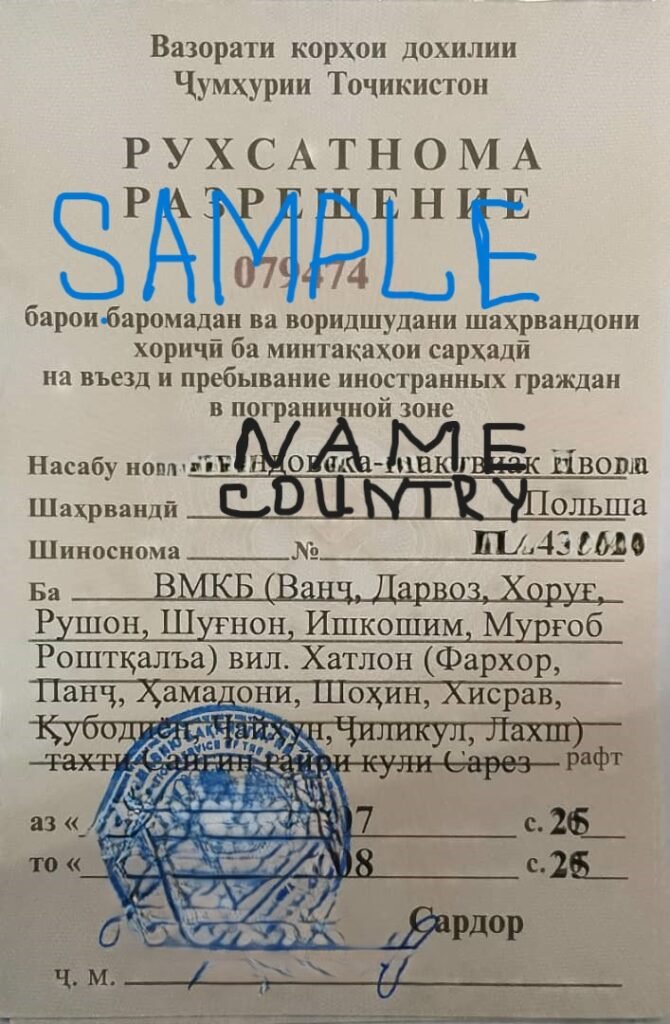 Вазорати корҳои дохилии
Ҷумҳурии Тоҷикистон
РУХСАТНОМА
РАЗРЕШЕНИЕ
SAMPLE
079474
барои баромадан ва воридшудани шаҳрвандони
хориҷӣ ба минтақаҳои сарҳадӣ
на въезд и пребывание иностранных граждан
в пограничной зоне
NAME
Насабу
COUNTRY
Шаҳрвандӣ Польша
Шиноснома №
Ба ВМКБ (Ванҷ, Дарвоз, Хоруғ,
Рушон, Шуғнон, Ишкошим, Мурғоб
Роштқалъа) вил. Хатлон (Фархор,
Панҷ, Ҳамадони, Шоҳин, Хисрав,
Қубодиён, Ҷайҳун,Ҷиликул, Лахш)
тахти Сангин ғайри кули Сарез рафт
аз « 07 с.
то « 08 с.
Сардор
Ҷ. М.